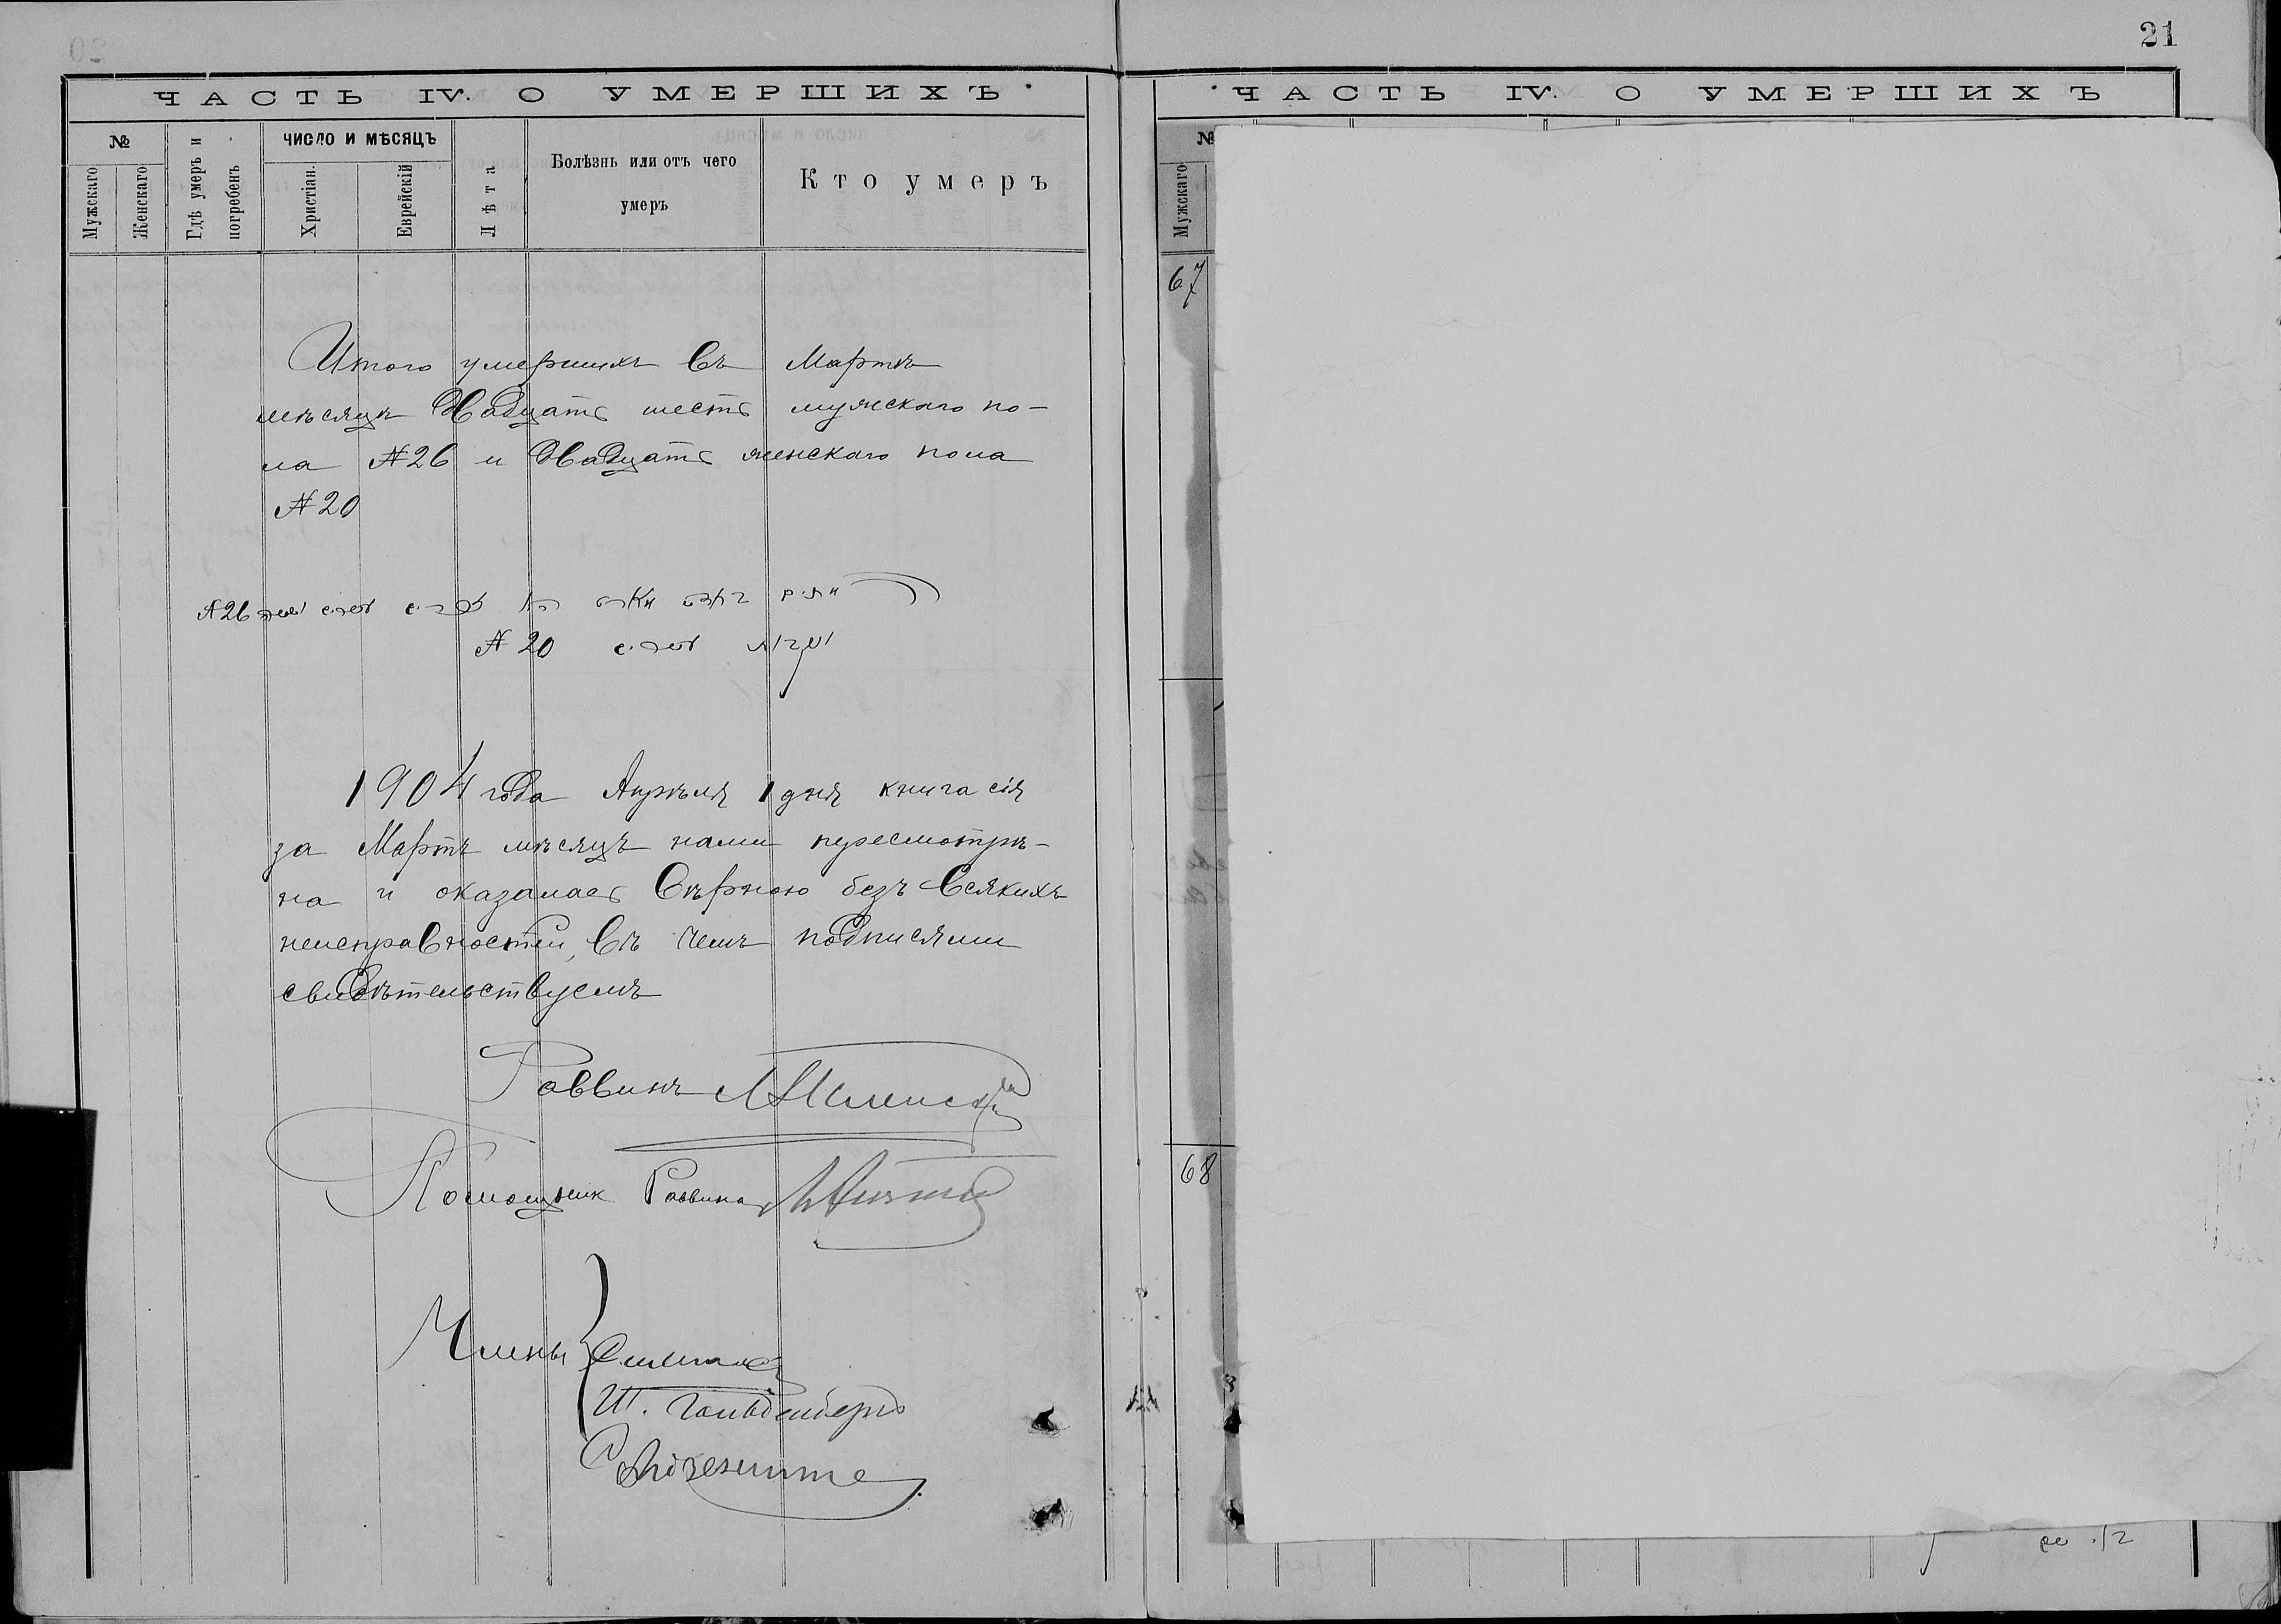 21
ЧАСТЬ IV. О УМЕРШИХЪ
№
Мужскаго
Женскаго
Гдѣ умеръ и погребенъ
ЧИСЛО И МѢСЯЦЪ
Христіан.
Еврейскій
Лѣта
Болѣзнь или отъ чего
умеръ
Кто умеръ
Итого умершихъ въ Мартѣ
мѣсяцѣ двадцать шесть мужского по-
ла №26 и двадцать женского пола
№20
№26
№ 20
1904 года Апрѣля 1 дня книга сія
за Мартъ мѣсяцъ нами пересмотрѣ-
на и оказалась вѣрною безъ всякихъ
неисправностей, въ чемъ подписями
свидѣтельствуемъ
Раввинъ
Помощник Раввина
Члены
Ш. Гольденбергъ
ЧАСТЬ IV. О УМЕРШИХЪ
№
Мужскаго
67
68